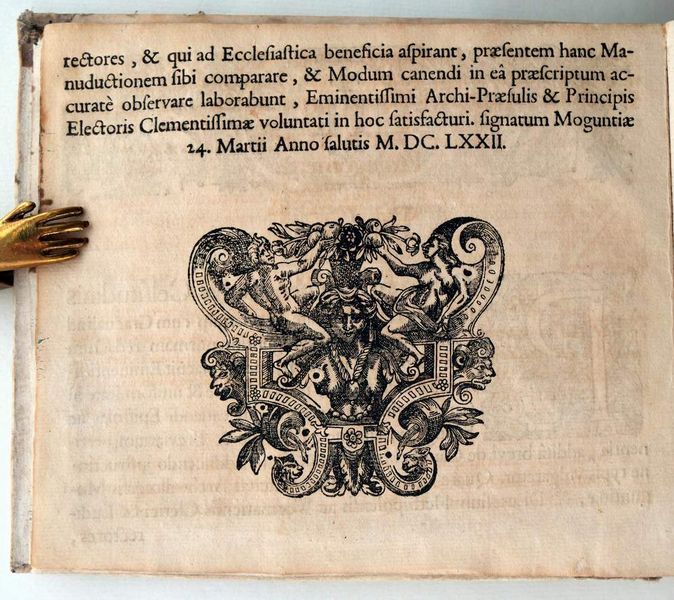 rectores, & qui ad Ecclesiaſtica beneficia aſpirant, præſentem hanc Ma-
nuductionem ſibi comparare, & Modum canendi in eâ præſcriptum ac-
curatè obſervare laborabunt, Eminentiſſimi Archi-Præſulis & Principis
Electoris Clementiſſimæ voluntati in hoc ſatisfacturi. ſignatum Moguntiæ
24. Martii Anno ſalutis M. DC. LXXII.